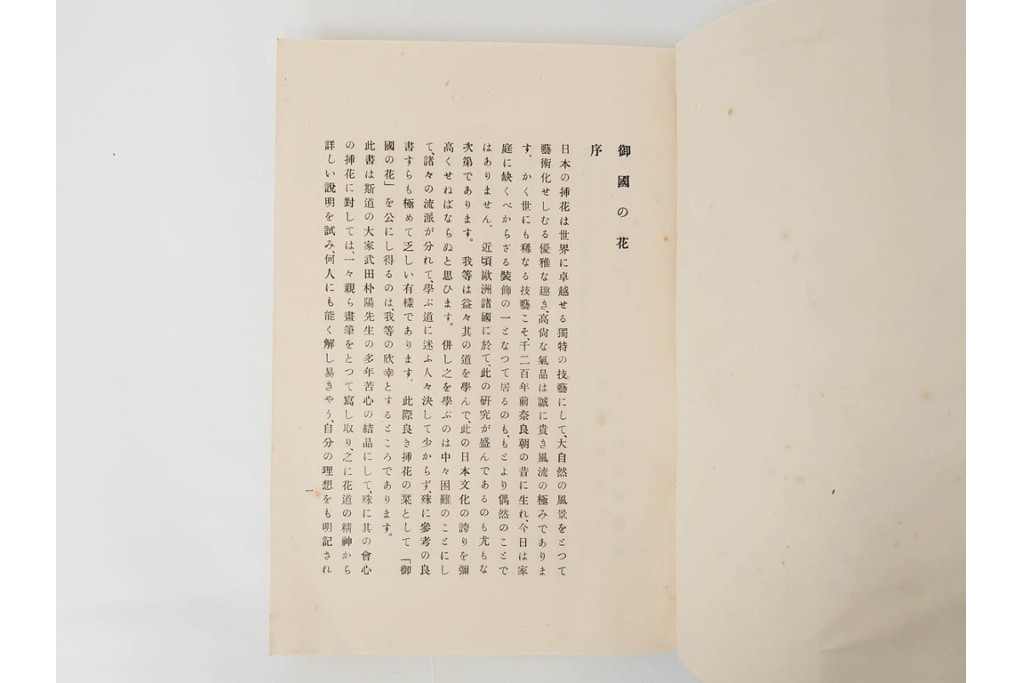 御國の花
序
日本の挿花は世界に卓越せる獨特の技藝にして、大自然の風景をとつて
藝術化せしむる優雅な趣き、高尙な氣品は誠に貴き風流の極みでありま
す。かく世にも稀なる技藝こそ、千二百年前奈良朝の昔に生れ、今日は家
庭に缺くべからざる裝飾の一となつて居るのも、もとより偶然のことで
はありません。近頃歐洲諸國に於て、此の研究が盛んであるのも尤もな
次第であります。我等は益々其の道を學んで、此の日本文化の誇りを彌
高くせねばならぬと思ひます。併し之を學ぶのは中々困難のことにし
て、諸々の流派が分れて、學ぶ道に迷ふ人々決して少からず、殊に參考の良
書すらも極めて乏しい有樣であります。此際良き挿花の栞として「御
國の花」を公にし得るのは、我等の欣幸とするところであります。
此書は斯道の大家武田朴陽先生の多年苦心の結晶にして、殊に其の會心
の挿花に對しては、一々親ら畫筆をとつて寫し取り、之に花道の精神から
詳しい說明を試み、何人にも能く解し易きやう、自分の理想をも明記され
一